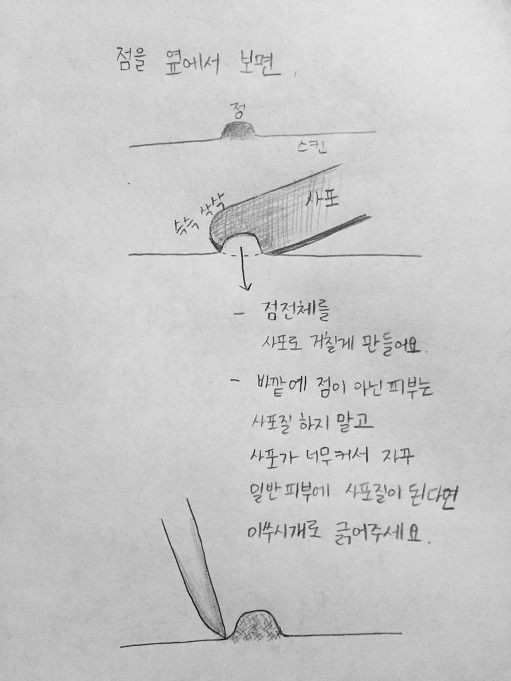 점을 옆에서 보면,
점
스킨
슥슥 삭삭
사포
- 점전체를
사포로 거칠게 만들어요.
- 바깥에 점이 아닌 피부는
사포질 하지 말고
사포가 너무커서 자꾸
일반피부에 사포질이 된다면
이쑤시개로 긁어주세요.